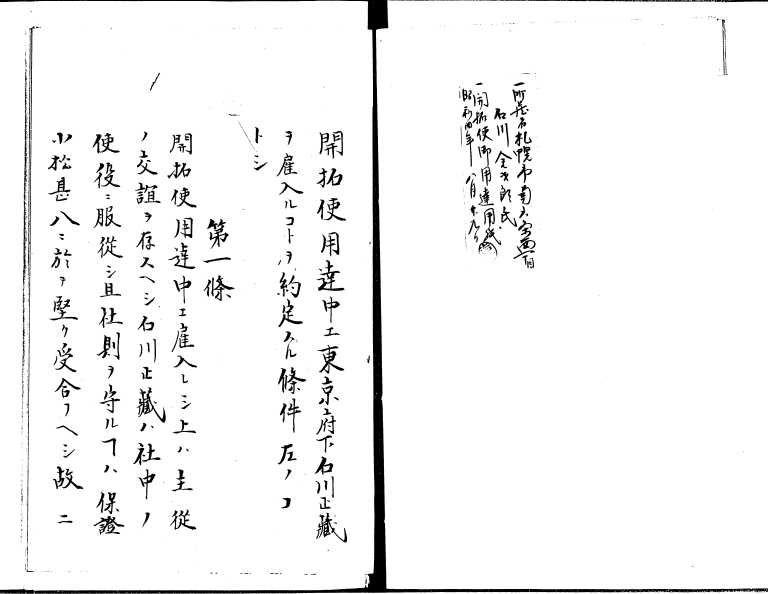 一所蔵者札幌市南六条西一丁目
石川金次郎氏
一開拓使御用達用紙
昭和四年八月十九日
開拓使用達中エ東京府下石川正藏
ヲ雇入ルコトヲ約定スル條件左ノコ
トシ
第一條
開拓使用達中エ雇入レシ上ハ主從
ノ交誼ヲ存スヘシ石川正藏ハ社中ノ
使役ニ服從シ且社則ヲ守ルヿハ保證
小松甚八ニ於テ堅ク受合フヘシ故ニ